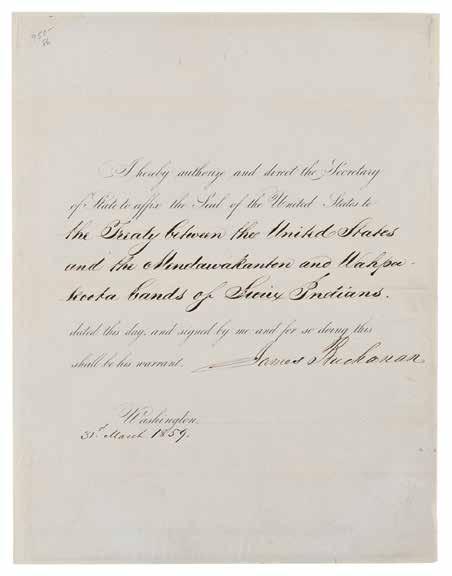 I hereby authorize and direct the Secretary
of State to affix the Seal of the United States to
the Treaty between the United States
and the Mendawakanton and Wahpa-
koota bands of Sioux Indians.
dated this day, and signed by me and for so doing this
shall be his warrant. James Buchanan
Washington,
31st March 1859.